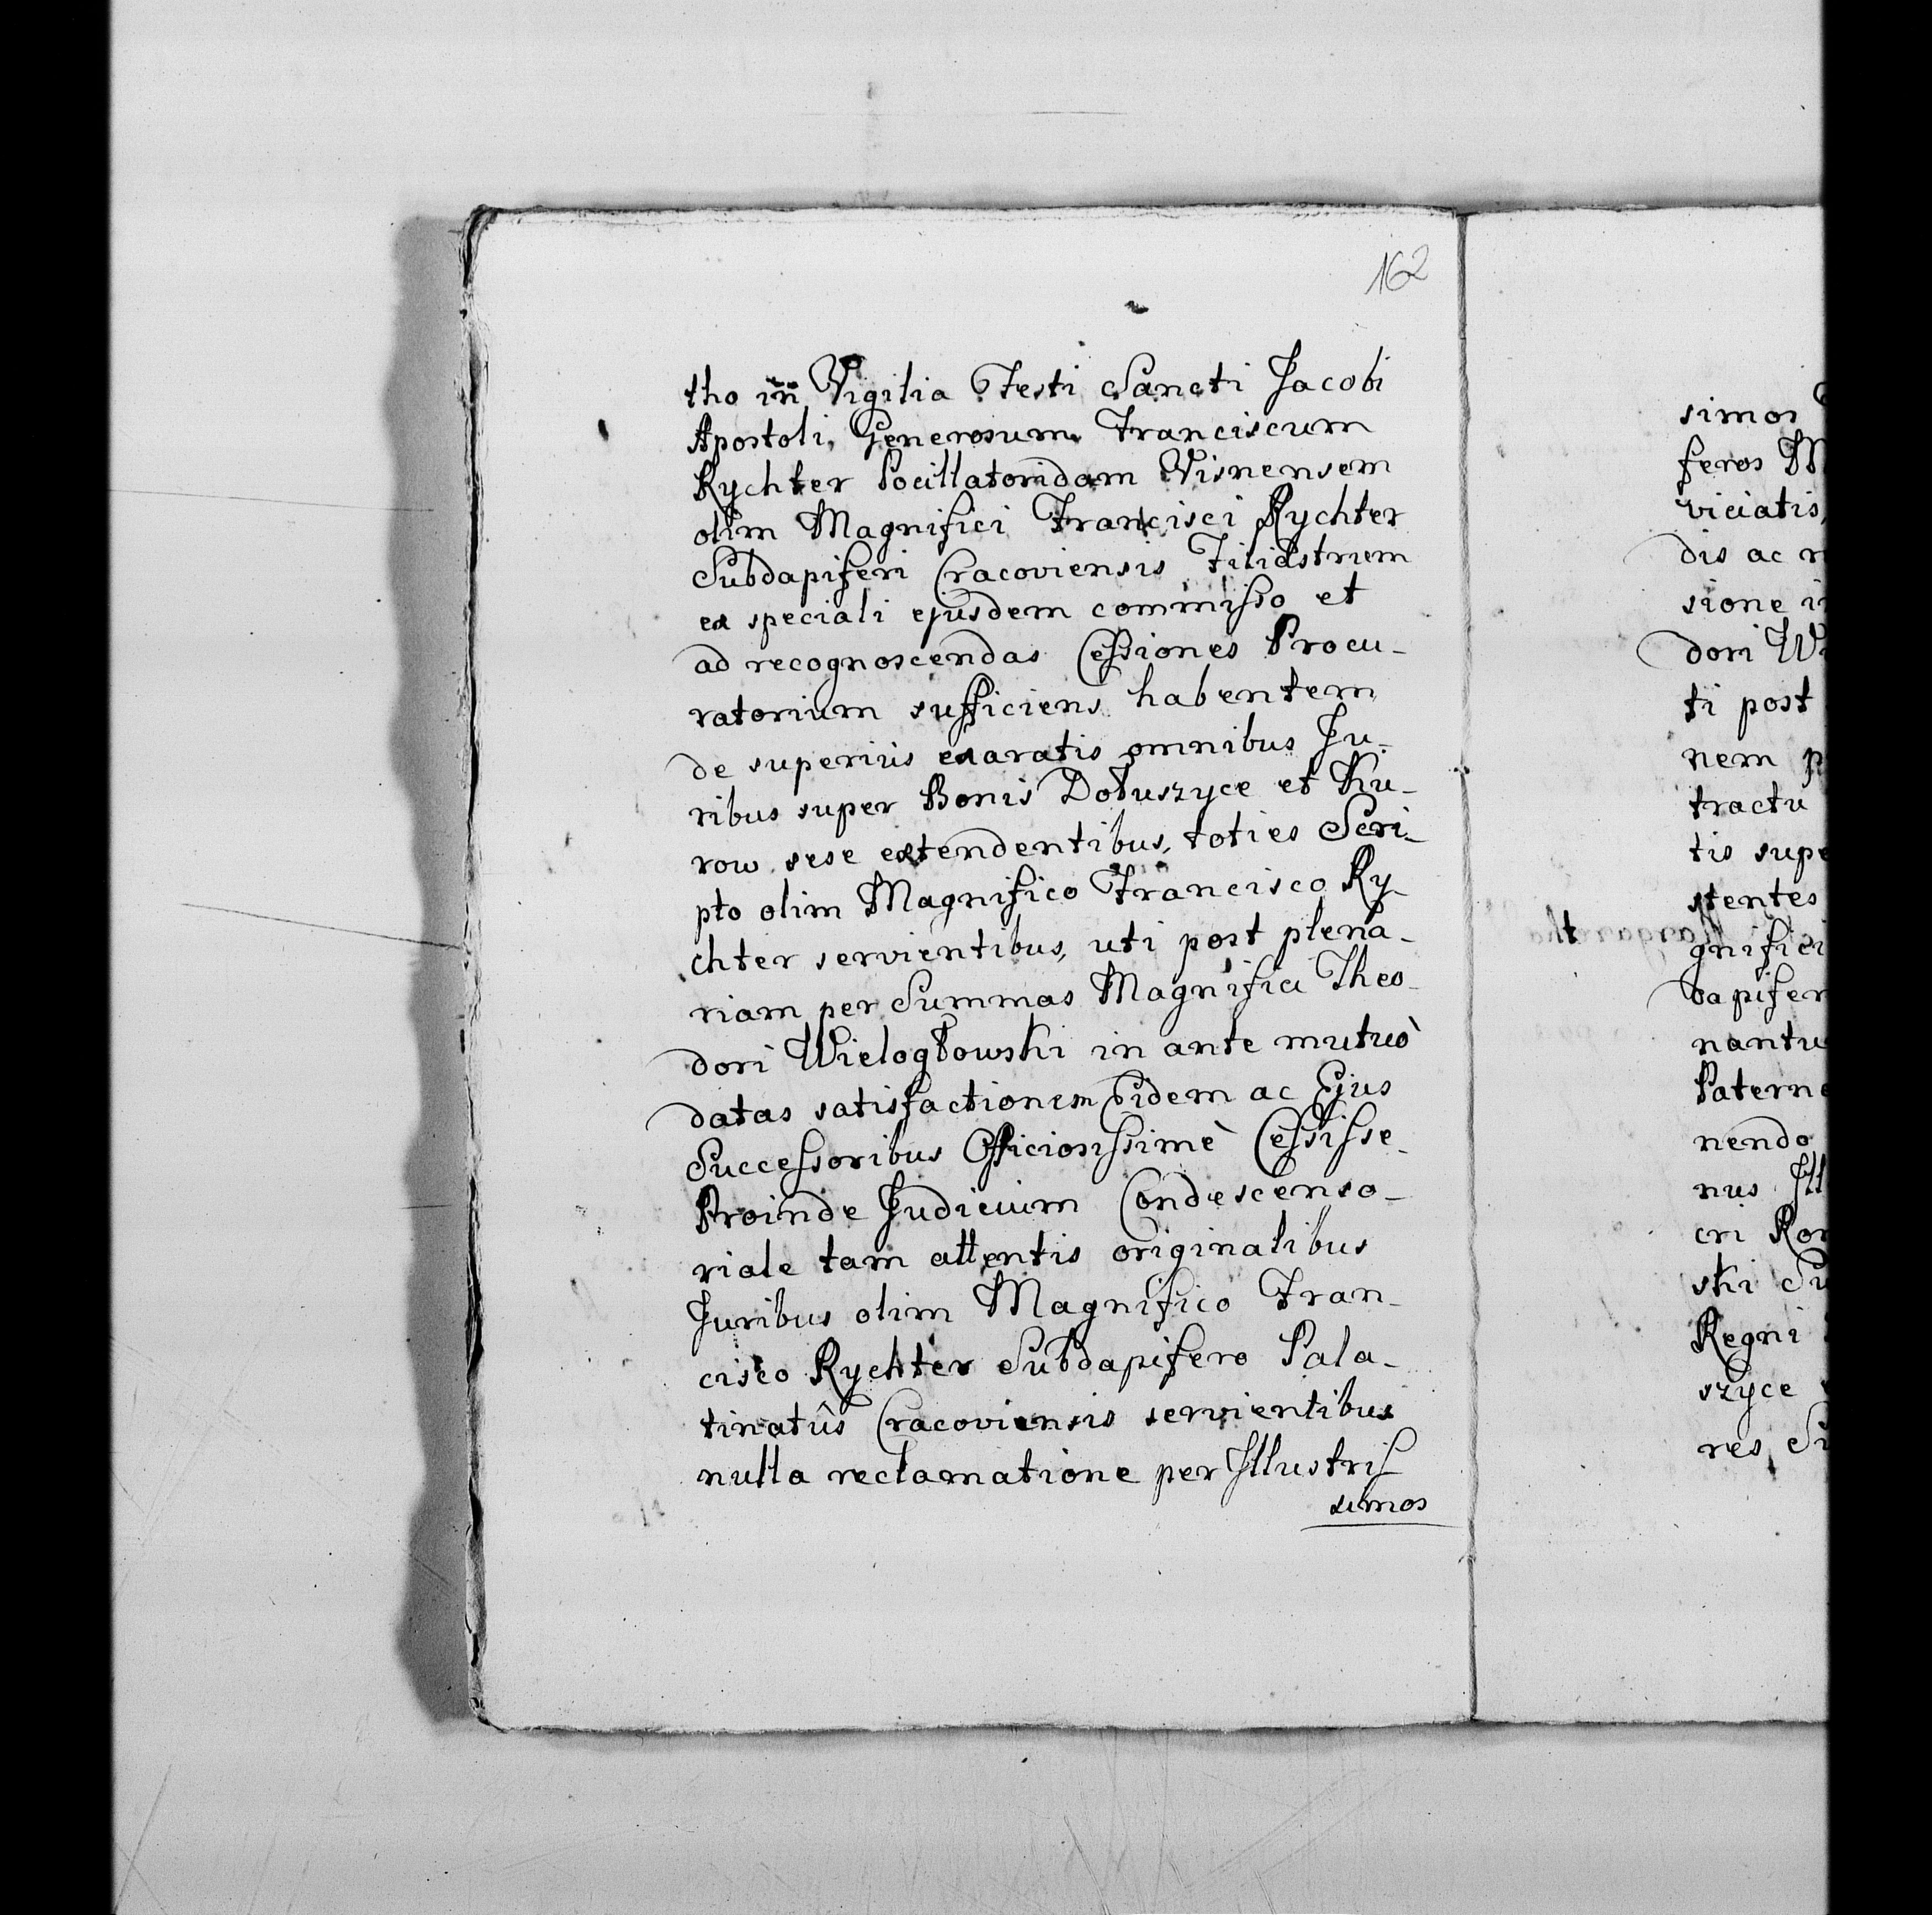 162
tho in Vigilia Festi Sancti Jacobi
Apostoli, Generosum Franciscum
Rychter Pocillatoridam Visnensem
olim Magnifici Francisci Rychter
Subdapiferi Cracoviensis Filiastrum
ex speciali ejusdem commisso et
ad recognoscendas Cessiones Procu-
ratorium sufficiens habentem
de superius exaratis omnibus Ju-
ribus super Bonis Dołuszyce et Ku-
row sese extendentibus, toties Scri-
pto olim Magnifico Francisco Ry-
chter servientibus, uti post plena-
riam per Summas Magnifici Theo-
dori Wielogłowski in ante mutuò
datas satisfactionem Eidem ac Ejus
Successoribus Officiosissimè Cessisse-
Proinde Judicium Condescenso-
riale tam attentis originalibus
Juribus olim Magnifico Fran-
cisco Rychter Subdapifero Pala-
tinatûs Cracoviensis servientibus
nulla reclamatione per Illustris
simos
simos
feros M
viciatis,
dis ac n
sione in
dori Wi
ti post
nem p
tractu
tis supe
stentes
gnifici
dapifer
nantu
Paterno
nendo
nus Ill
cri Rom
ski Su
Regni
szyce
res Su